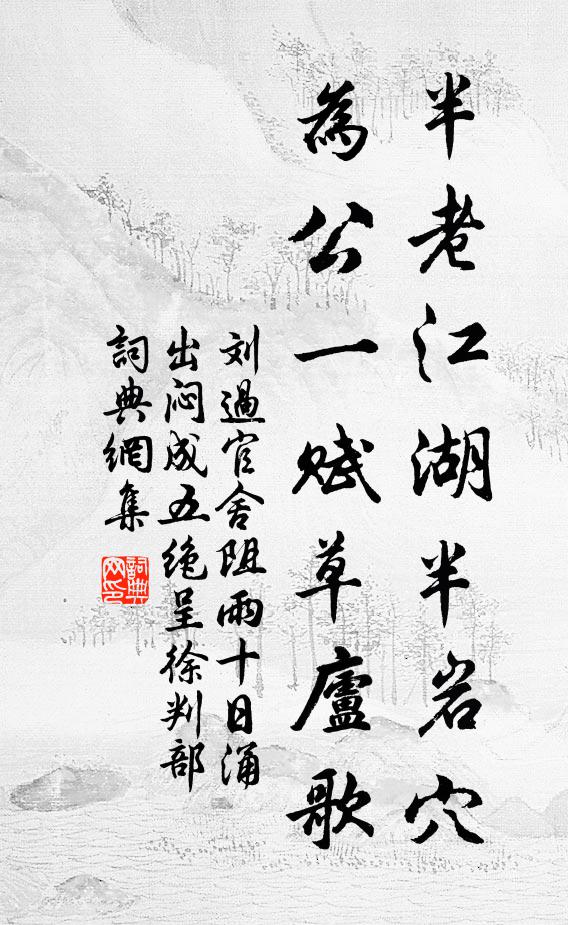 半老江湖半岩穴
為公一賦草廬歌
刘過官舍阻雨十日涌
出闷成五绝呈徐判部
詞典網集
詞典網印